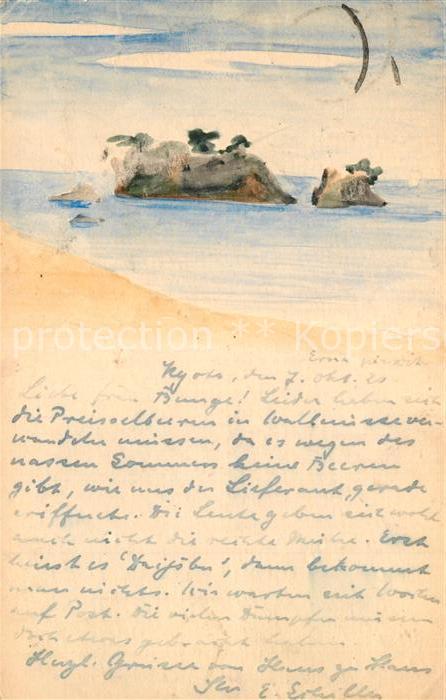 protection ** Kopierschutz
Kyoto, den 7. Okt. 25
Liebe Frau Bunge! Leider haben sich
die Preisselbeeren in Wallnüsse ver-
wandeln müssen, da es wegen des
nassen Sommers keine Beeren
gibt, wie uns der Lieferant gerade
eröffnete. Die Leute geben sich wohl
auch nicht die rechte Mühe. Erst
heisst es 'Daijobu', dann bekommt
man nichts. Wir warten seit Wochen
auf Post. Die vielen Dampfer müssen
doch etwas gebracht haben.
Herzl. Grüsse von Haus zu Haus
Ihr E.